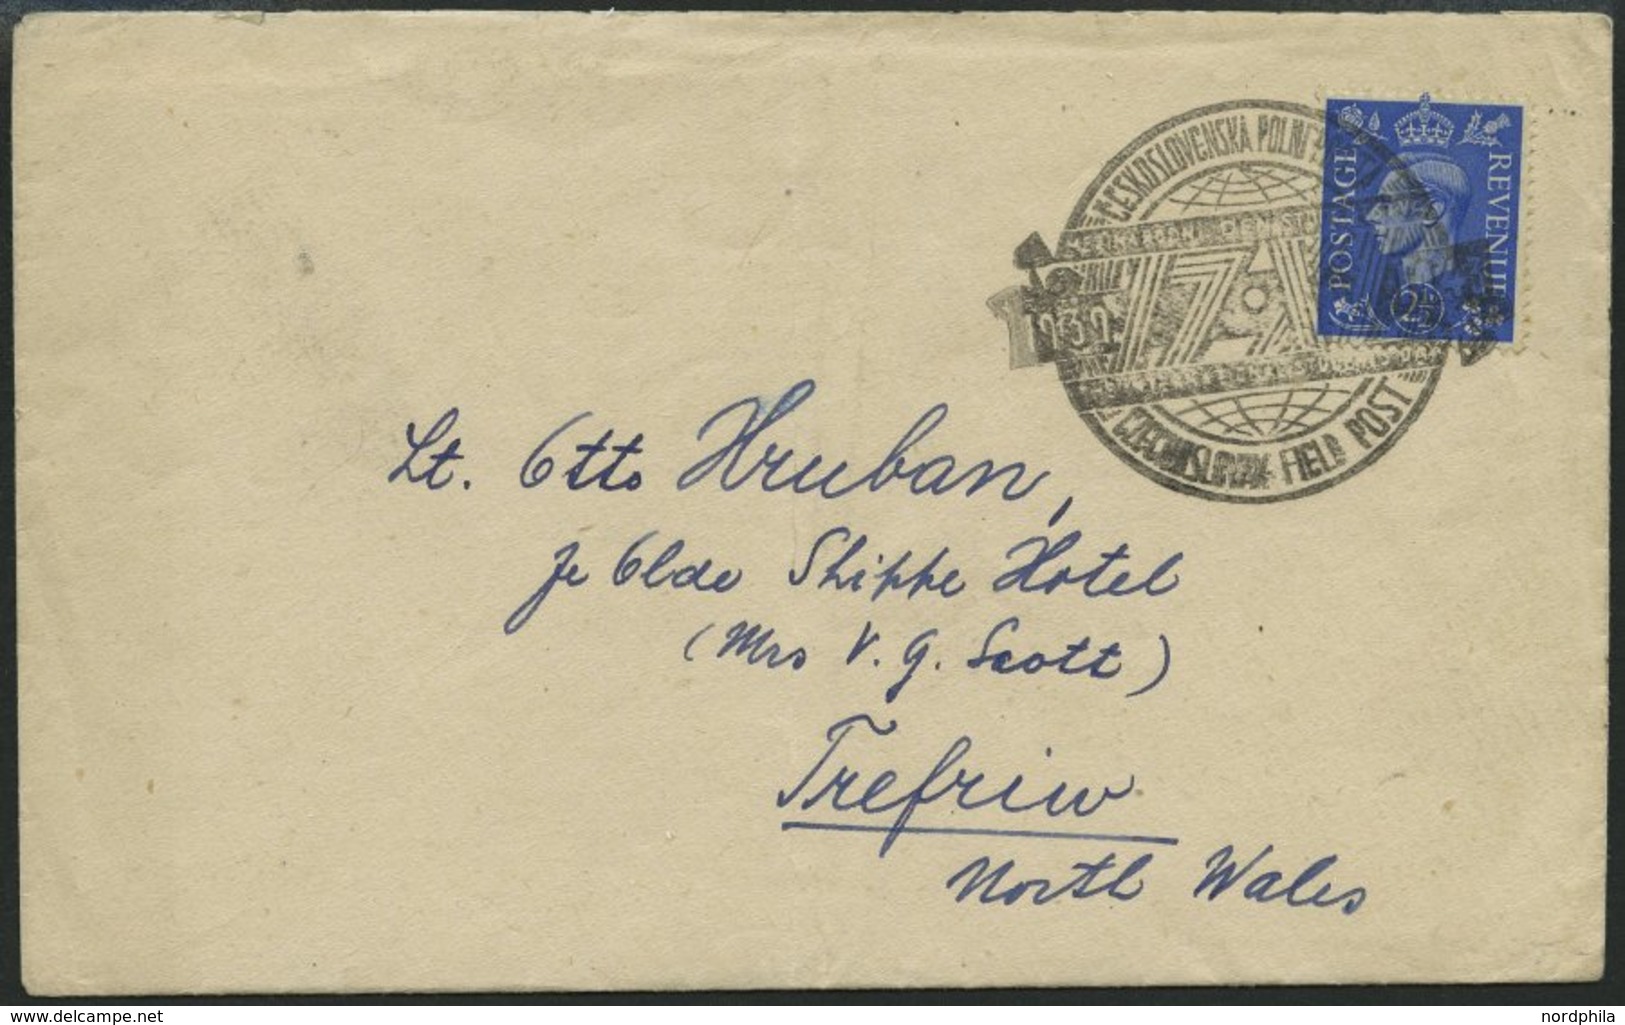 ČESKOSLOVENSKÁ POLNÍ
POSTAGE
REVENUE
2½
17
1939
CZECHOSLOVAK FIELD POST
Lt. Otto Hruban,
Ye Olde Shippe Hotel
(Mrs V. G. Scott)
Trefriw
North Wales
www.delcampe.net
nordphila